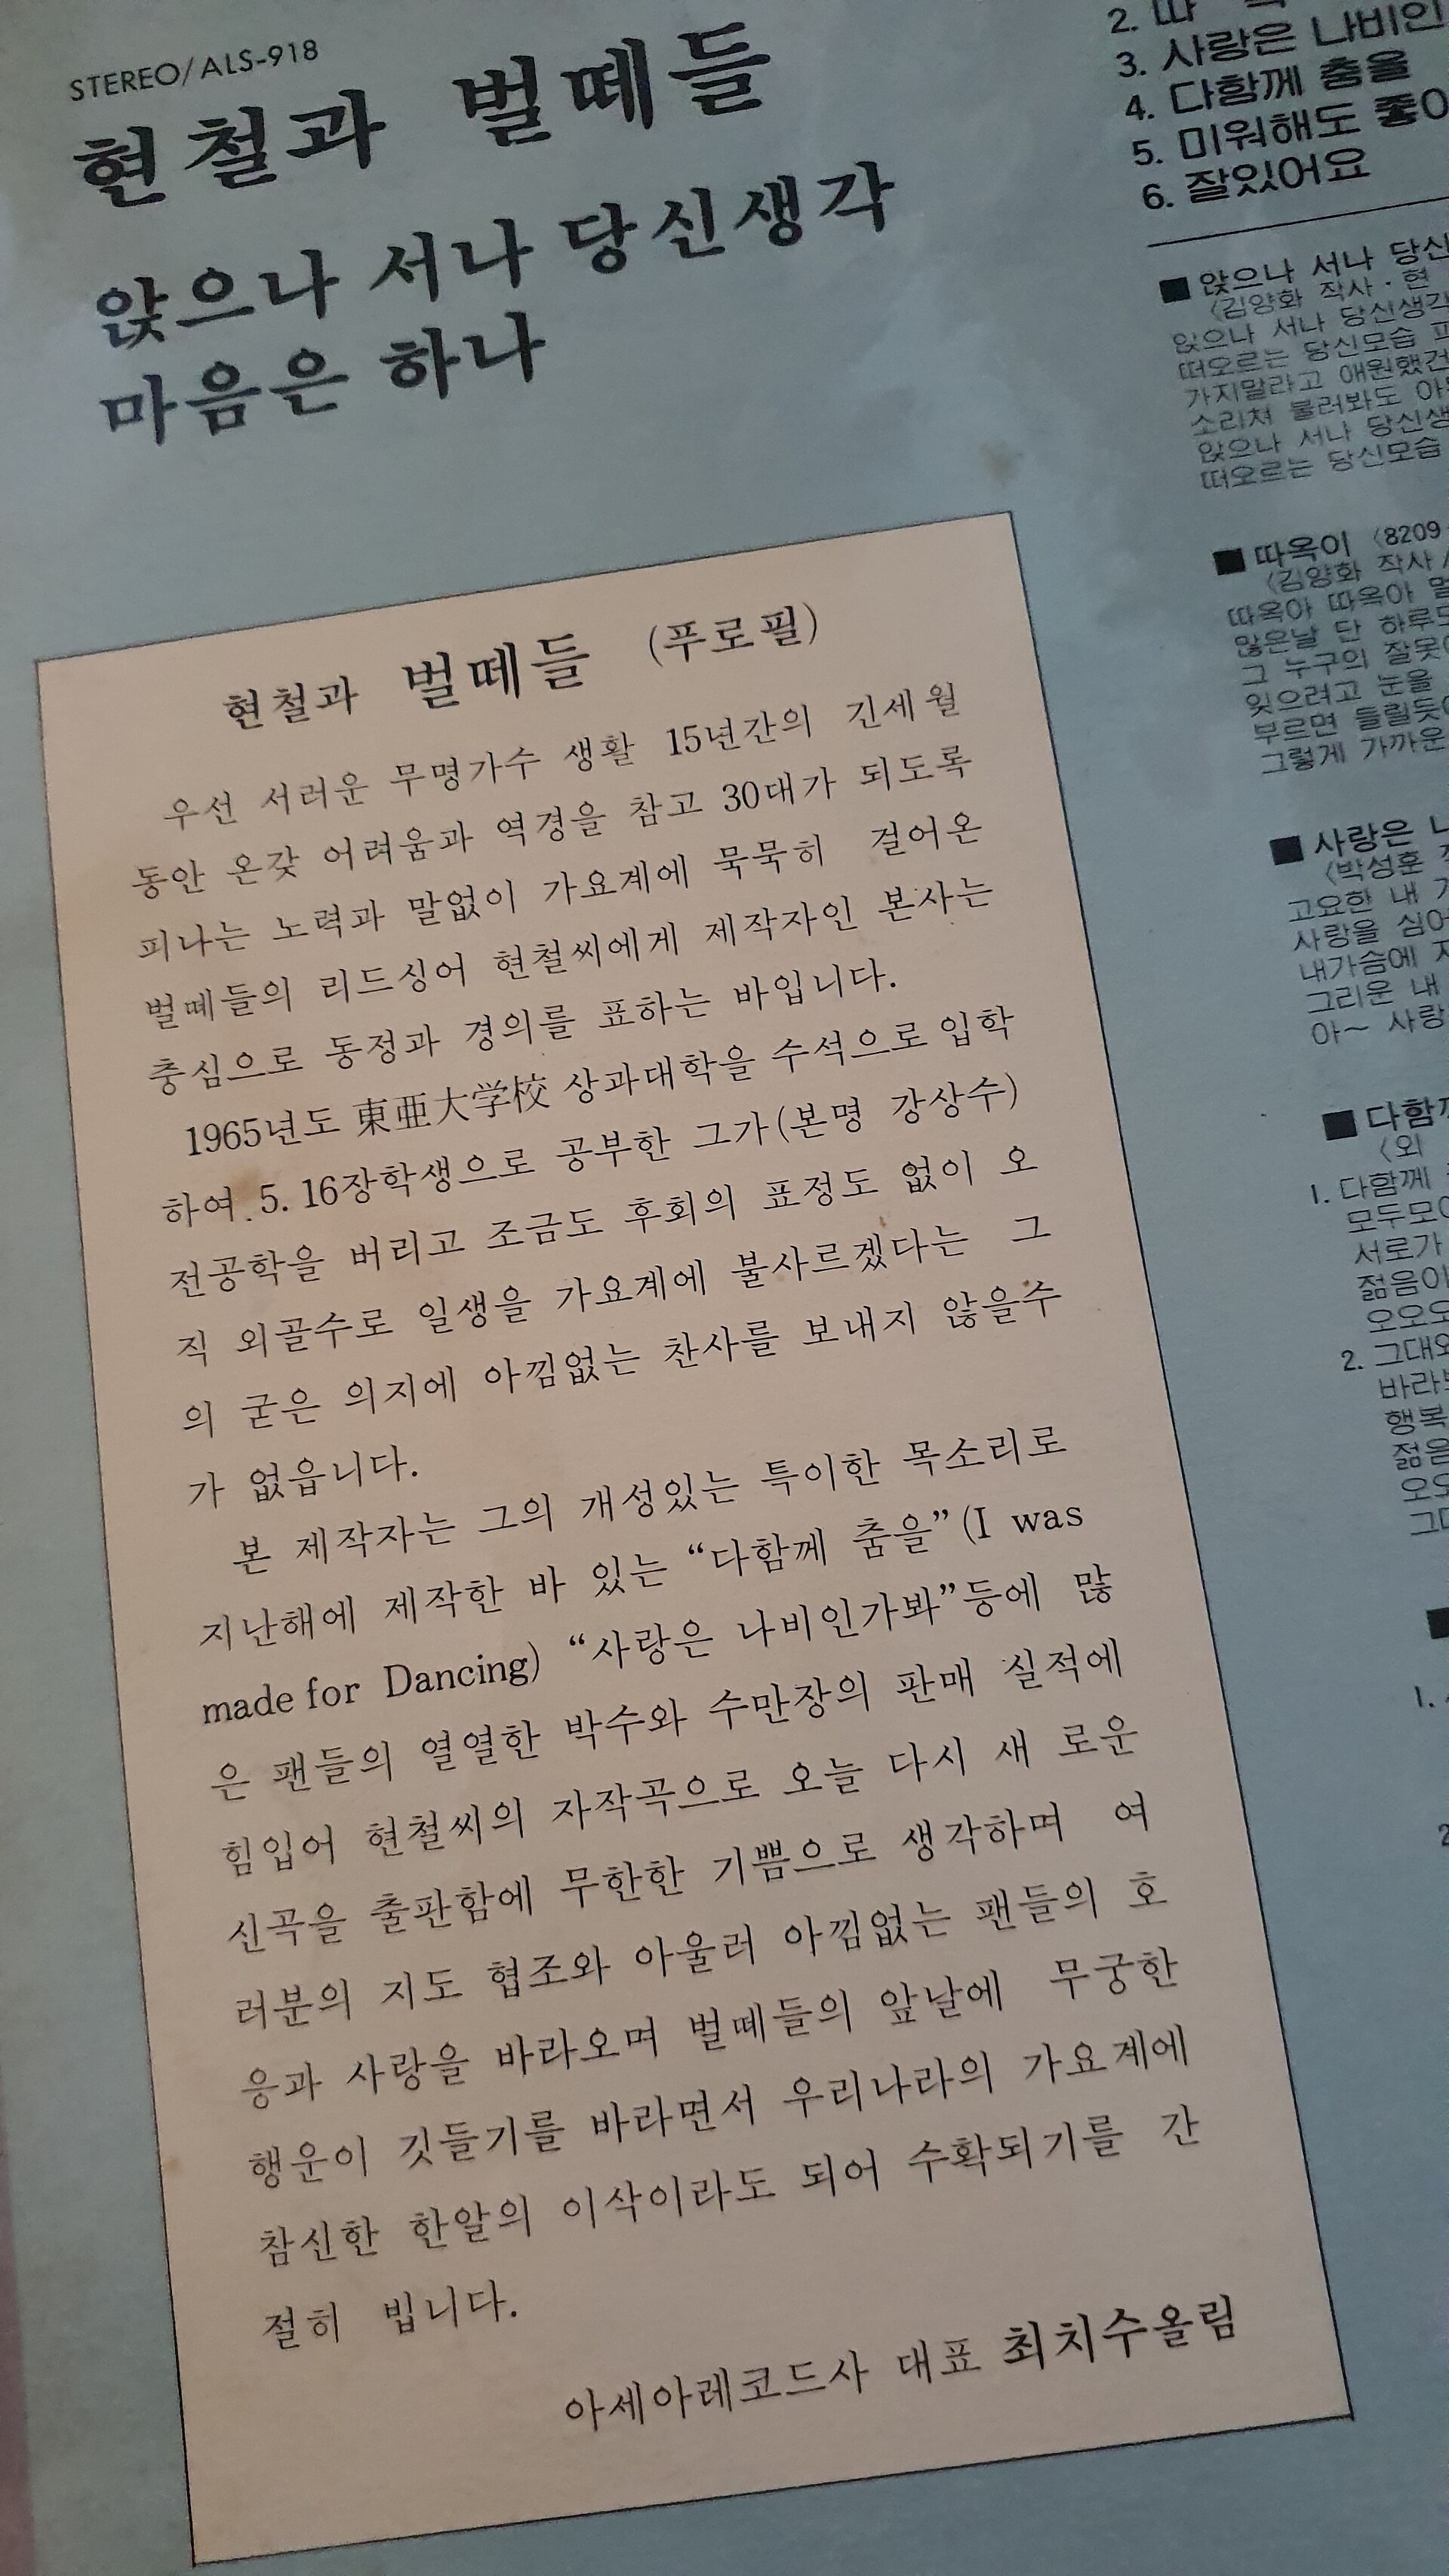 STEREO/ALS-918
현철과 벌떼들
앉으나 서나 당신생각
마음은 하나
현철과 벌떼들 (푸로필)
우선 서러운 무명가수 생활 15년간의 긴세월
동안 온갖 어려움과 역경을 참고 30대가 되도록
피나는 노력과 말없이 가요계에 묵묵히 걸어온
벌떼들의 리드싱어 현철씨에게 제작자인 본사는
충심으로 동정과 경의를 표하는 바입니다.
1965년도 東亜大学校 상과대학을 수석으로 입학
하여 5. 16장학생으로 공부한 그가(본명 강상수)
전공학을 버리고 조금도 후회의 표정도 없이 오
직 외골수로 일생을 가요계에 불사르겠다는 그
의 굳은 의지에 아낌없는 찬사를 보내지 않을수
가 없읍니다.
본 제작자는 그의 개성있는 특이한 목소리로
지난해에 제작한 바 있는 “다함께 춤을”(I was
made for Dancing) “사랑은 나비인가봐”등에 많
은 팬들의 열열한 박수와 수만장의 판매 실적에
힘입어 현철씨의 자작곡으로 오늘 다시 새 로운
신곡을 출판함에 무한한 기쁨으로 생각하며 여
러분의 지도 협조와 아울러 아낌없는 팬들의 호
응과 사랑을 바라오며 벌떼들의 앞날에 무궁한
행운이 깃들기를 바라면서 우리나라의 가요계에
참신한 한알의 이삭이라도 되어 수확되기를 간
절히 빕니다.
아세아레코드사 대표 최치수올림
2. 따
3. 사랑은 나비인
4. 다함께 춤을
5. 미워해도 좋아
6. 잘있어요
■ 앉으나 서나 당신
〈김양화 작사·현
앉으나 서나 당신생각
떠오르는 당신모습
가지말라고 애원했건
소리쳐 불러봐도
앉으나 서나 당신생
떠오르는 당신모습
■ 따옥이 〈8209
〈김양화 작사
따옥아 따옥아
많은날 단 하루도
그 누구의 잘못
잊으려고 눈을
부르면 들릴듯
그렇게 가까운
■ 사랑은
〈박성훈
고요한 내
사랑을 심어
내가슴에
그리운 내
아~ 사랑
■ 다함께
〈외
1. 다함께
모두모
서로가
젊음이
오오오
2. 그대와
바라
행복
젊음
오오
그대
■
1.
2